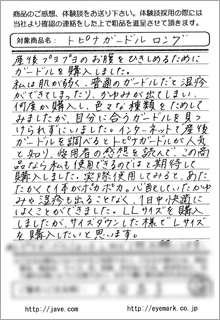 商品のご感想、体験談をお送り下さい。体験談採用の際には
当社より確認の連絡をした上で粗品を進呈させて頂きます。
対象商品名: トピナガードル ロング
産後プヨプヨのお腹をひきしめるために
ガードルを購入しました。
私は肌が弱く、普通のガードルだと湿疹
ができてしまったり、かゆみが出てしまい、
何度か購入し、色々な種類をためして
みましたが、自分に合うガードルを見つ
けられずにいました。インターネットで産後
ガードルを調べるとトピナガードルが人気
と知り、使用者の感想を読んで、この商
品なら私も使用できるのではと期待して
購入しました。実際使用してみると、あた
たかくて体がポカポカ。心配していたかゆ
みや湿疹も出ることなく、1日中快適に
はくことができました。LLサイズを購入
しましたが、サイズダウンした様でLサイズ
を購入したいと思います。
http://jave.com
http://www.eyemark.co.jp